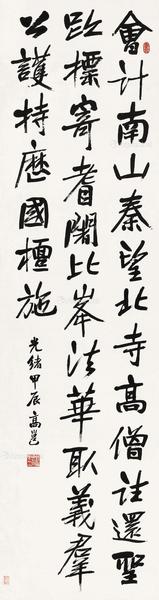 會計南山秦望北寺高僧往還聖
趾標寄耆闍比峯法華取義羣
公護持歷國檀施
光緒甲辰高邕